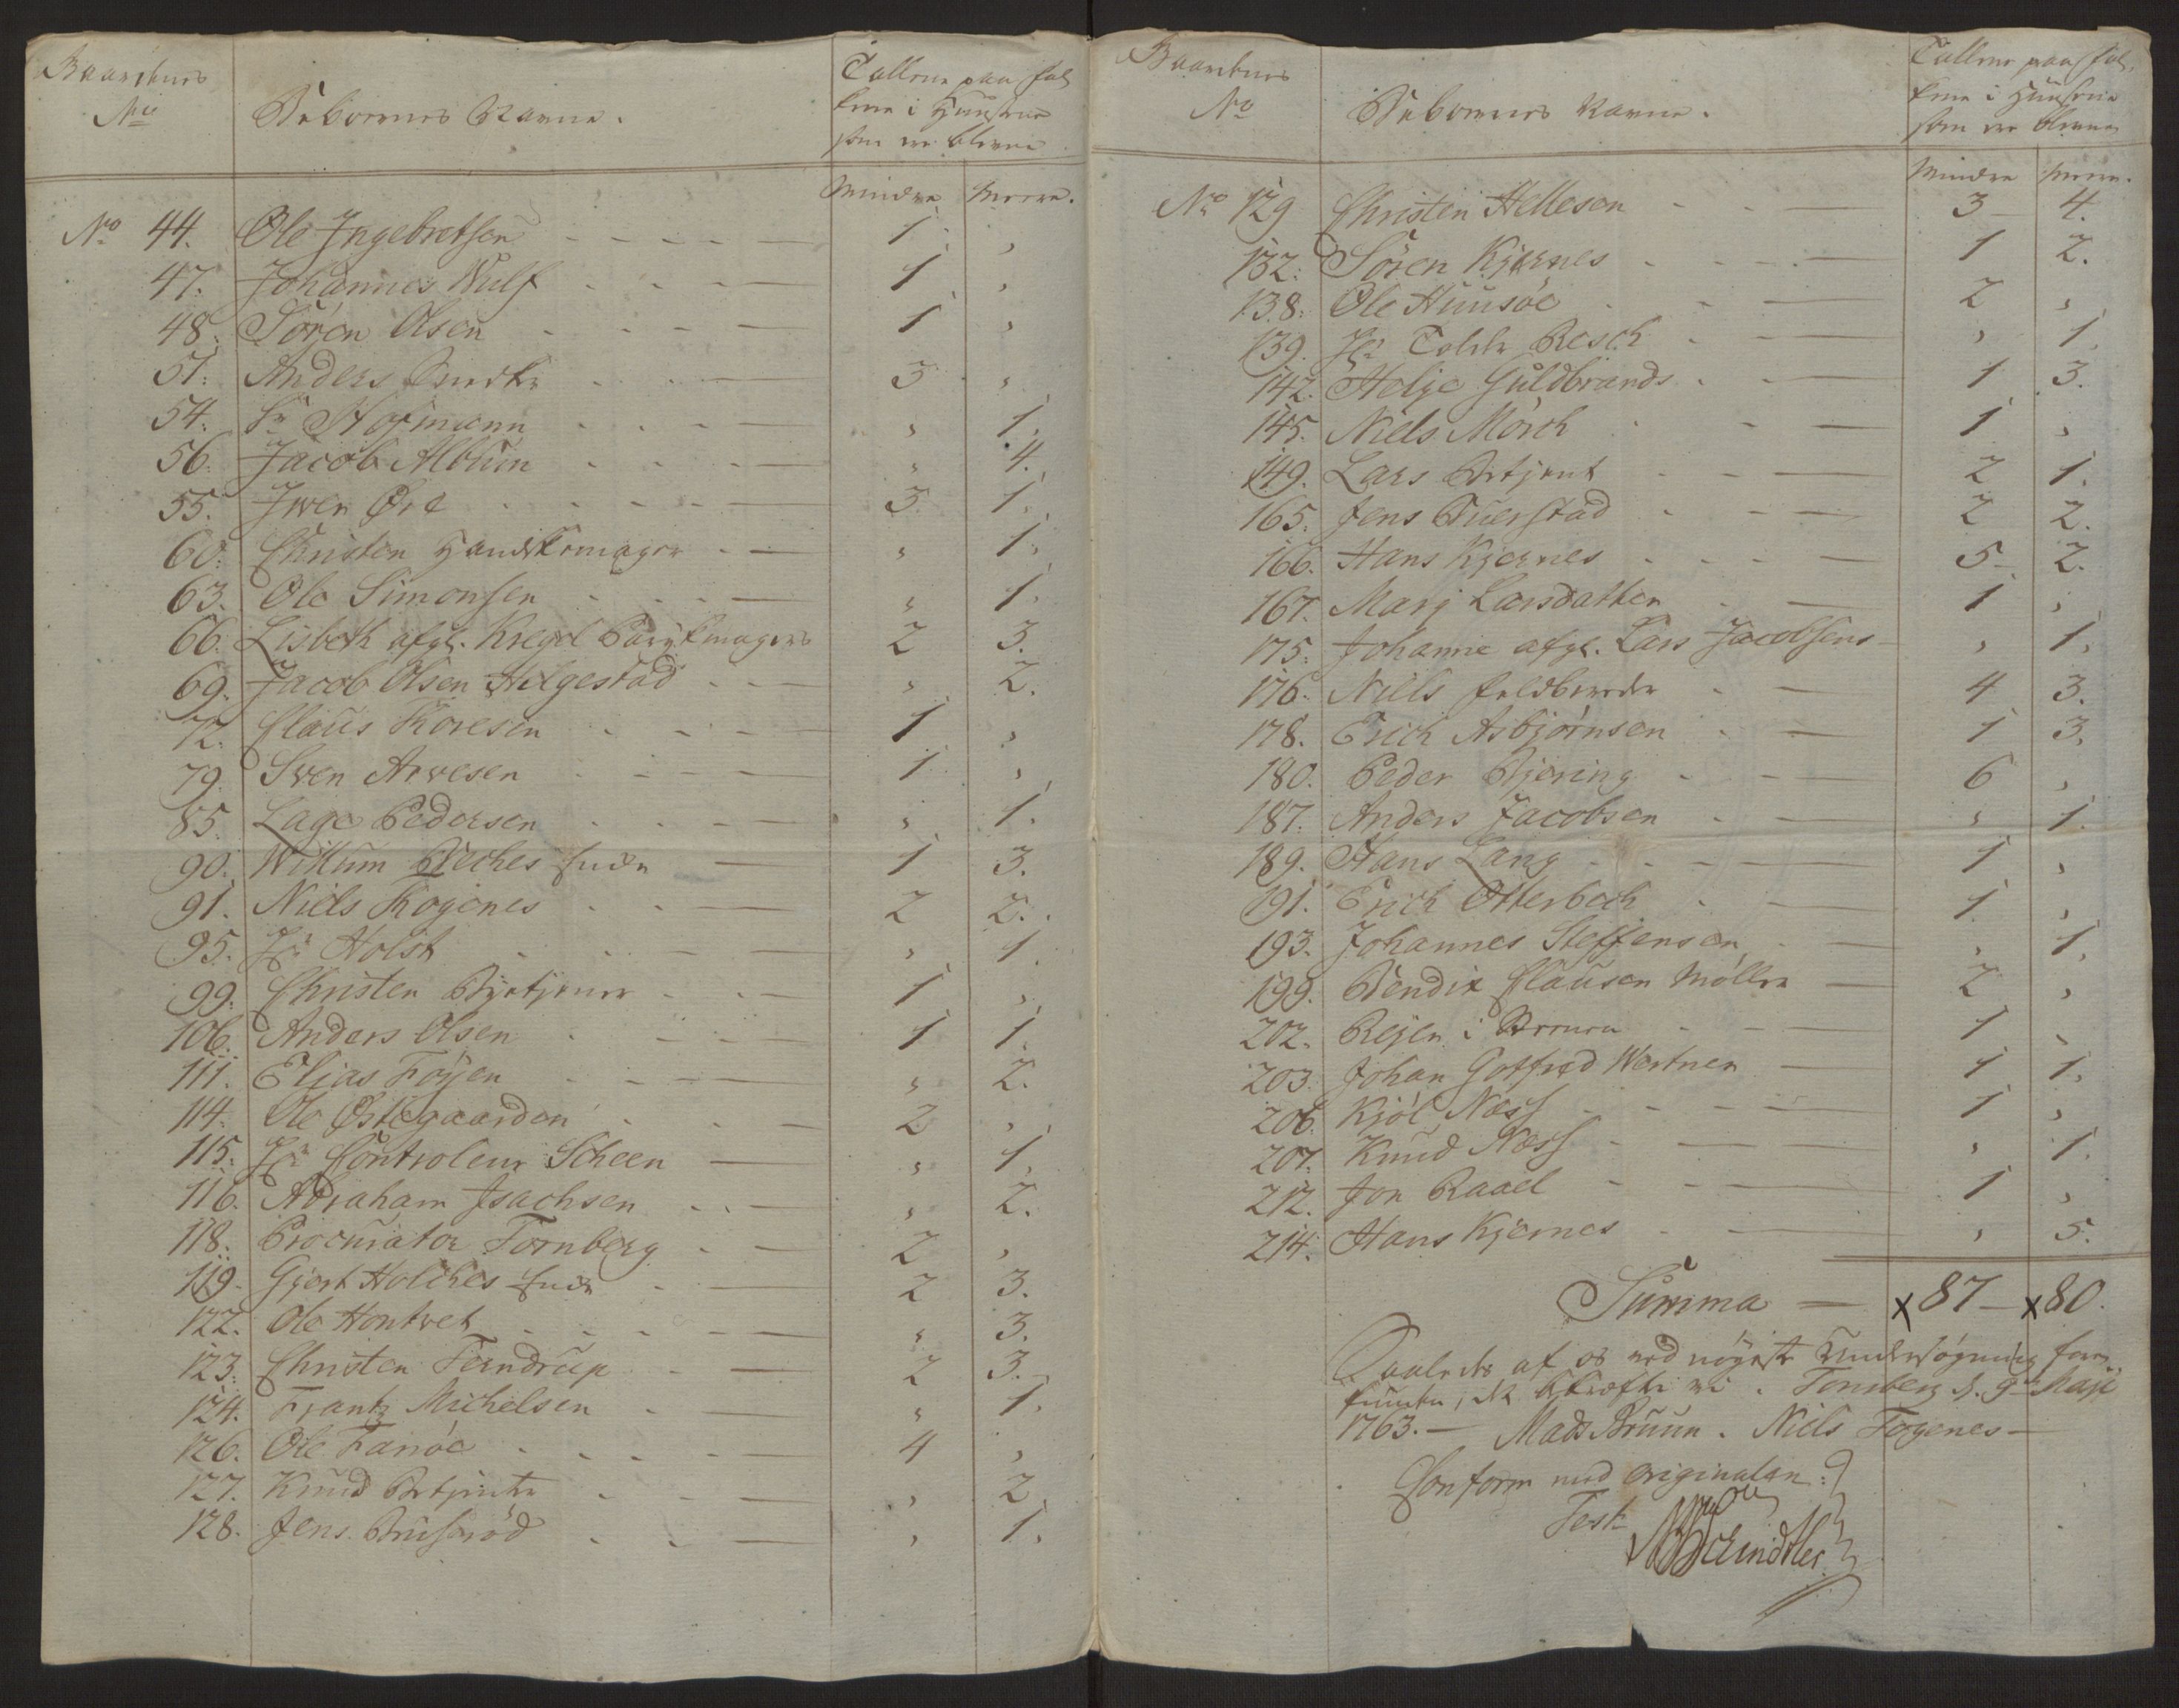 Gaardenes
No
Beboernes Navne.
Tallene paa Fol
kene i Huusene
som ere blevne
Mindre Meere.
No 44. Ole Ingebretsen 1 ,
47. Johannes Wulf 1 ,
48. Sören Olsen 1 ,
51. Anders 3 ,
54. Sr Hofmann , 1.
56. Jacob Alblum , 4.
55. Iwer Øre 3 1.
60. Christen Handskemager , 1.
63. Ole Simonsen , 1.
66. Lisbeth afgl. Kregel Parykmagers 2 3.
69. Jacob Olsen Helgestad , 2.
72. Claus Koresen 1 ,
79. Sven Arvesen 1 ,
85. Lage Pedersen , 1.
90. Willum Veches Enke 1 3.
91. Niels Kogenes 2 2.
95. Hr Holst , 1.
99. Christen Bytjener 1 ,
106. Anders Olsen 1 1.
111. Elias Föyen , 2.
114. Ole Østegaarden 2 ,
115. Hr Controleur Scheen , 1.
116. Abraham Isachsen , 2.
118. Procurator Fornberg 2 ,
119. Gjert Holches Enke 2 3.
122. Ole Hontvet , 3.
123. Christen Ferndrup 2 3.
124. Frantz Michelsen , 1.
126. Ole Fanöe 4 ,
127. Knud , 2
128. Jens Bruseröd , 1.
Gaardenes
No
Beboernes Navne.
Tallene paa Fol
kene i Huusene
som ere blevne
Mindre Meere.
No 129 Christen Hellesen 3 4.
132. Sören Kjernes 1 2.
138. Ole Huusöe 2 ,
139. Hr Tolder Resch , 1.
142. Helje Guldbrands 1 3.
145. Niels Mörch 1 ,
149. Lars 2 1.
165. Jens Tuerstad 2 2.
166. Hans Kjernes 5 2.
167. Marj Larsdatter 1 ,
175. Johanne afgl. Lars Jacobsens , 1.
176. Niels Feldbereder 4 3.
178. Erich Asbjörnsen 1 3.
180. Peder Bjering 6 ,
187. Anders Jacobsen , 1.
189. Hans Lang 1 ,
191. Erich Otterbech 1 ,
193. Johannes Steffensen , 1.
199. Bendix Clausen Möller 2 ,
202. Rejer i 1 ,
203. Johan Gotfred Wertner 1 1.
206. Kjöl Næss 1 ,
207. Knud Næss , 1.
212. Jon Raael 1 ,
214. Hans Kjernes , 5.
Summa x 87 x 80.
Saaledes af os ved nöyeste Undersögning be-
funden, det bekræfter vi. Tonsberg d. 9de Maji
1763. Mads Bruun. Niels Fogenes
Conform med originalen:
Test.
Schindtler